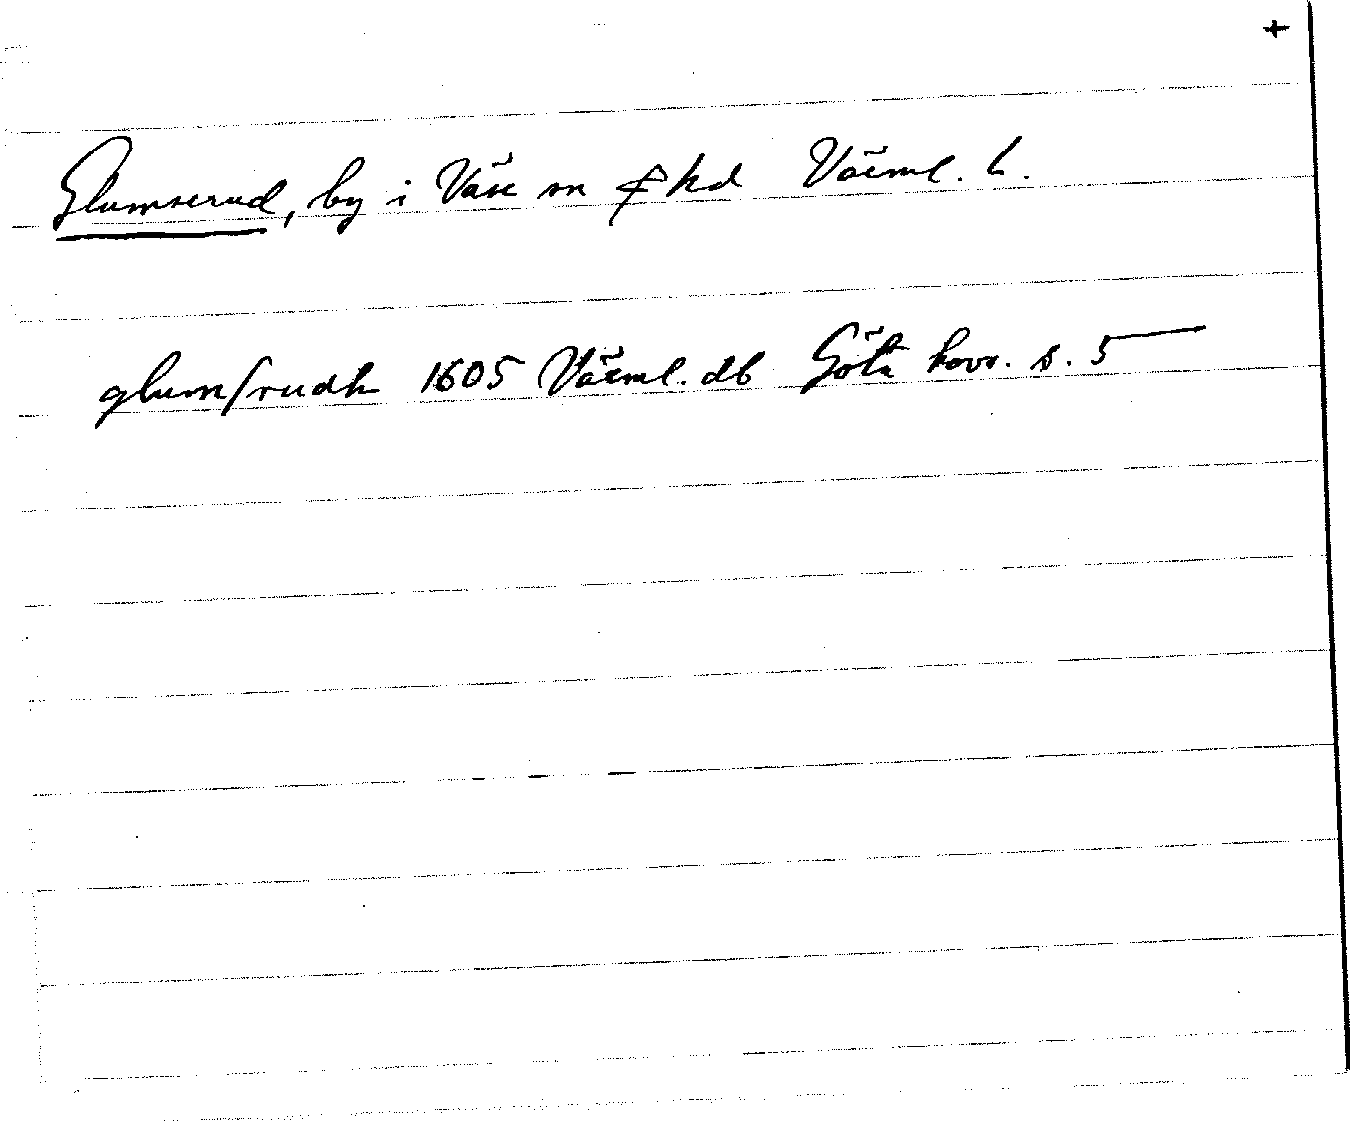 +
Glumserud, by i Väse sn ⨍ hd Värml. l.
glumſrudh 1605 Värml. db Göta hovr. s. 5